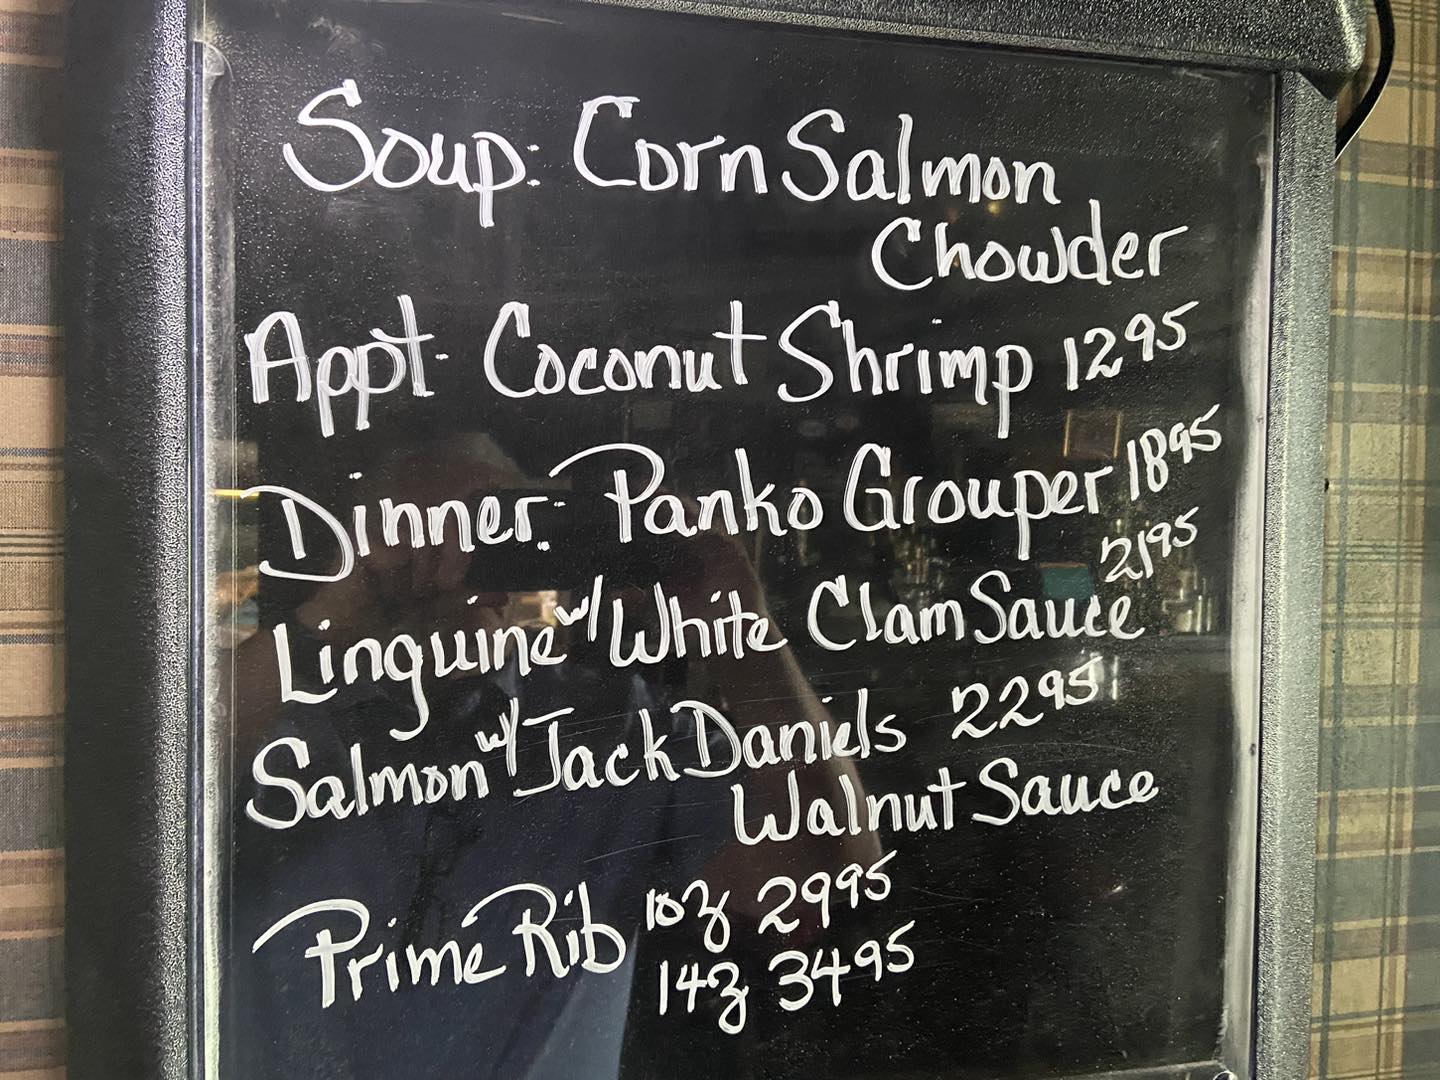 Soup: Corn Salmon
Chowder
Appt. Coconut Shrimp 12 95
Dinner: Panko Grouper 18 95
21 95
Linguine w/ White Clam Sauce
Salmon w/ Jack Daniels 22 95
Walnut Sauce
Prime Rib 10z 29 95
14z 34 95